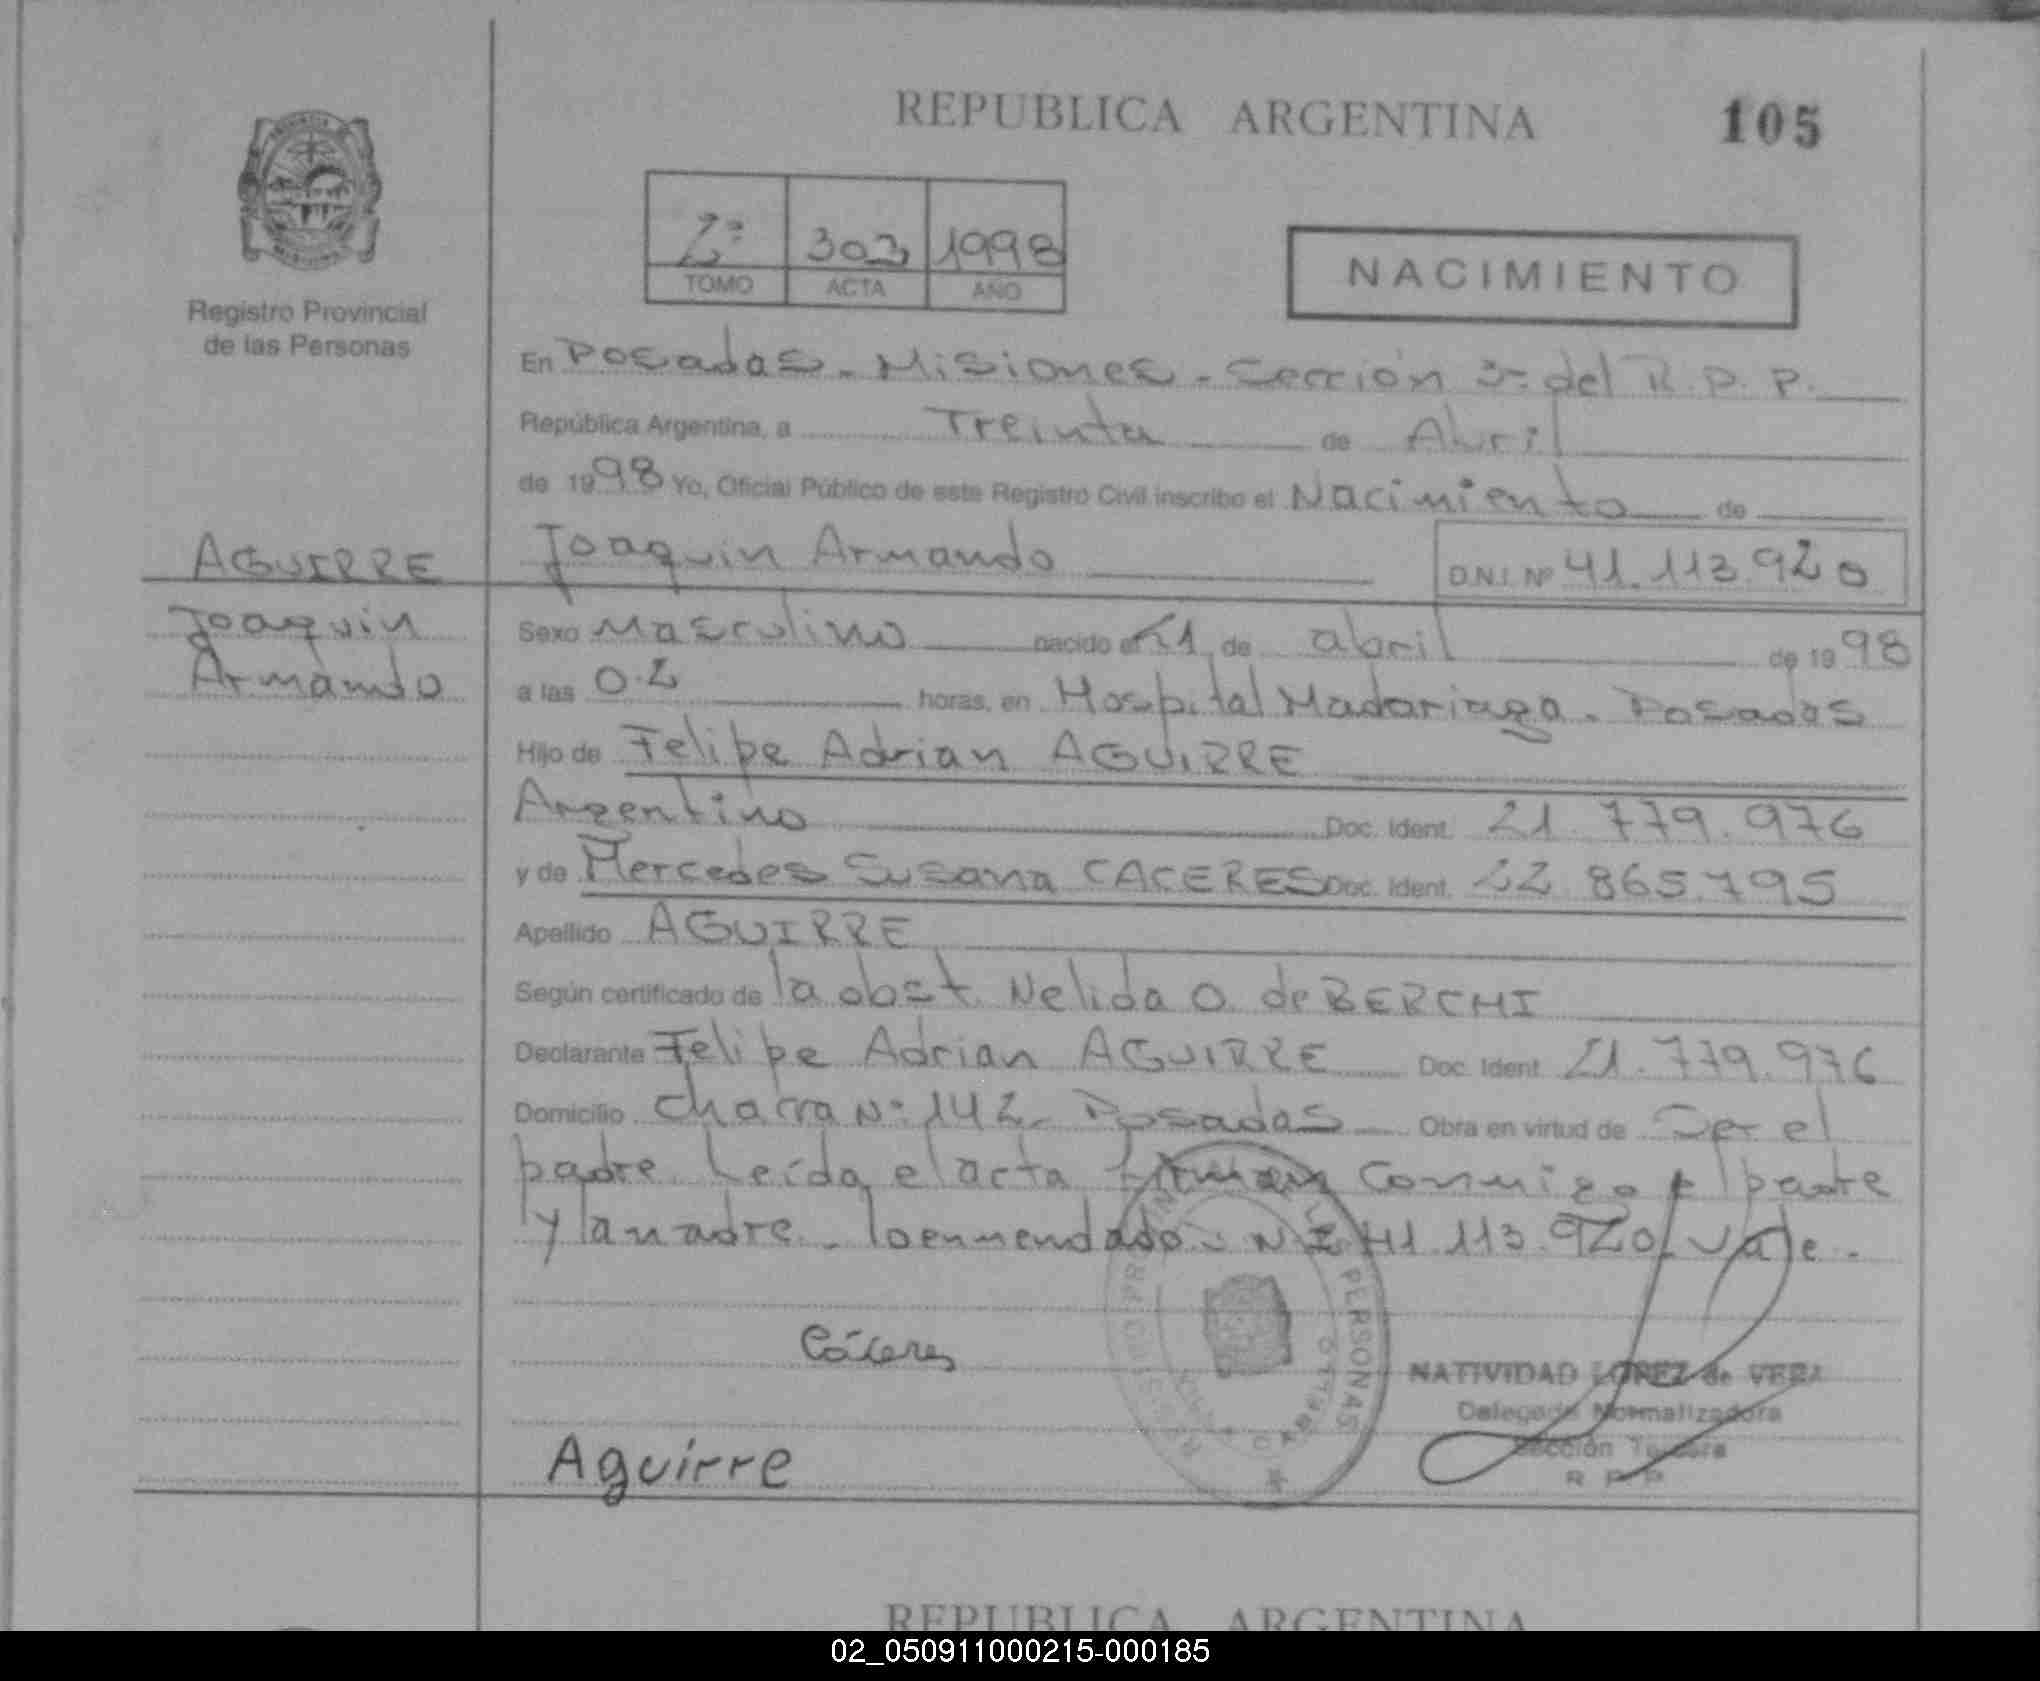 REPUBLICA ARGENTINA
105
2º 303 1998
TOMO ACTA AÑO
NACIMIENTO
Registro Provincial
de las Personas
En Posadas - Misiones - Sección 3ª del R.P.P.
República Argentina, a Treinta de Abril
de 1998 Yo, Oficial Público de este Registro Civil inscribo el Nacimiento de
AGUIRRE
Joaquin
Armando
Joaquin Armando D.N.I. Nº 41.113.920
Sexo Masculino nacido el 21 de abril de 1998
a las 0.2 horas, en Hospital Madariaga - Posadas
Hijo de Felipe Adrian AGUIRRE
Argentino Doc. Ident. 21.779.976
y de Mercedes Susana CACERES Doc. Ident. 22.865.795
Apellido AGUIRRE
Según certificado de la obst. Nelida O. de BERCHI
Declarante Felipe Adrian AGUIRRE Doc. Ident. 21.779.976
Domicilio Chacra Nº 142 - Posadas Obra en virtud de Ser el
padre. Leída el acta firman conmigo el padre
y la madre - lo enmendado - Nº 41.113.920 Vale -
Cáceres
Aguirre
REGISTRO PROVINCIAL DE LAS PERSONAS
NATIVIDAD LOPEZ de VERA
Delegada Normalizadora
Sección Tercera
R P P
REPUBLICA ARGENTINA
02_050911000215-000185